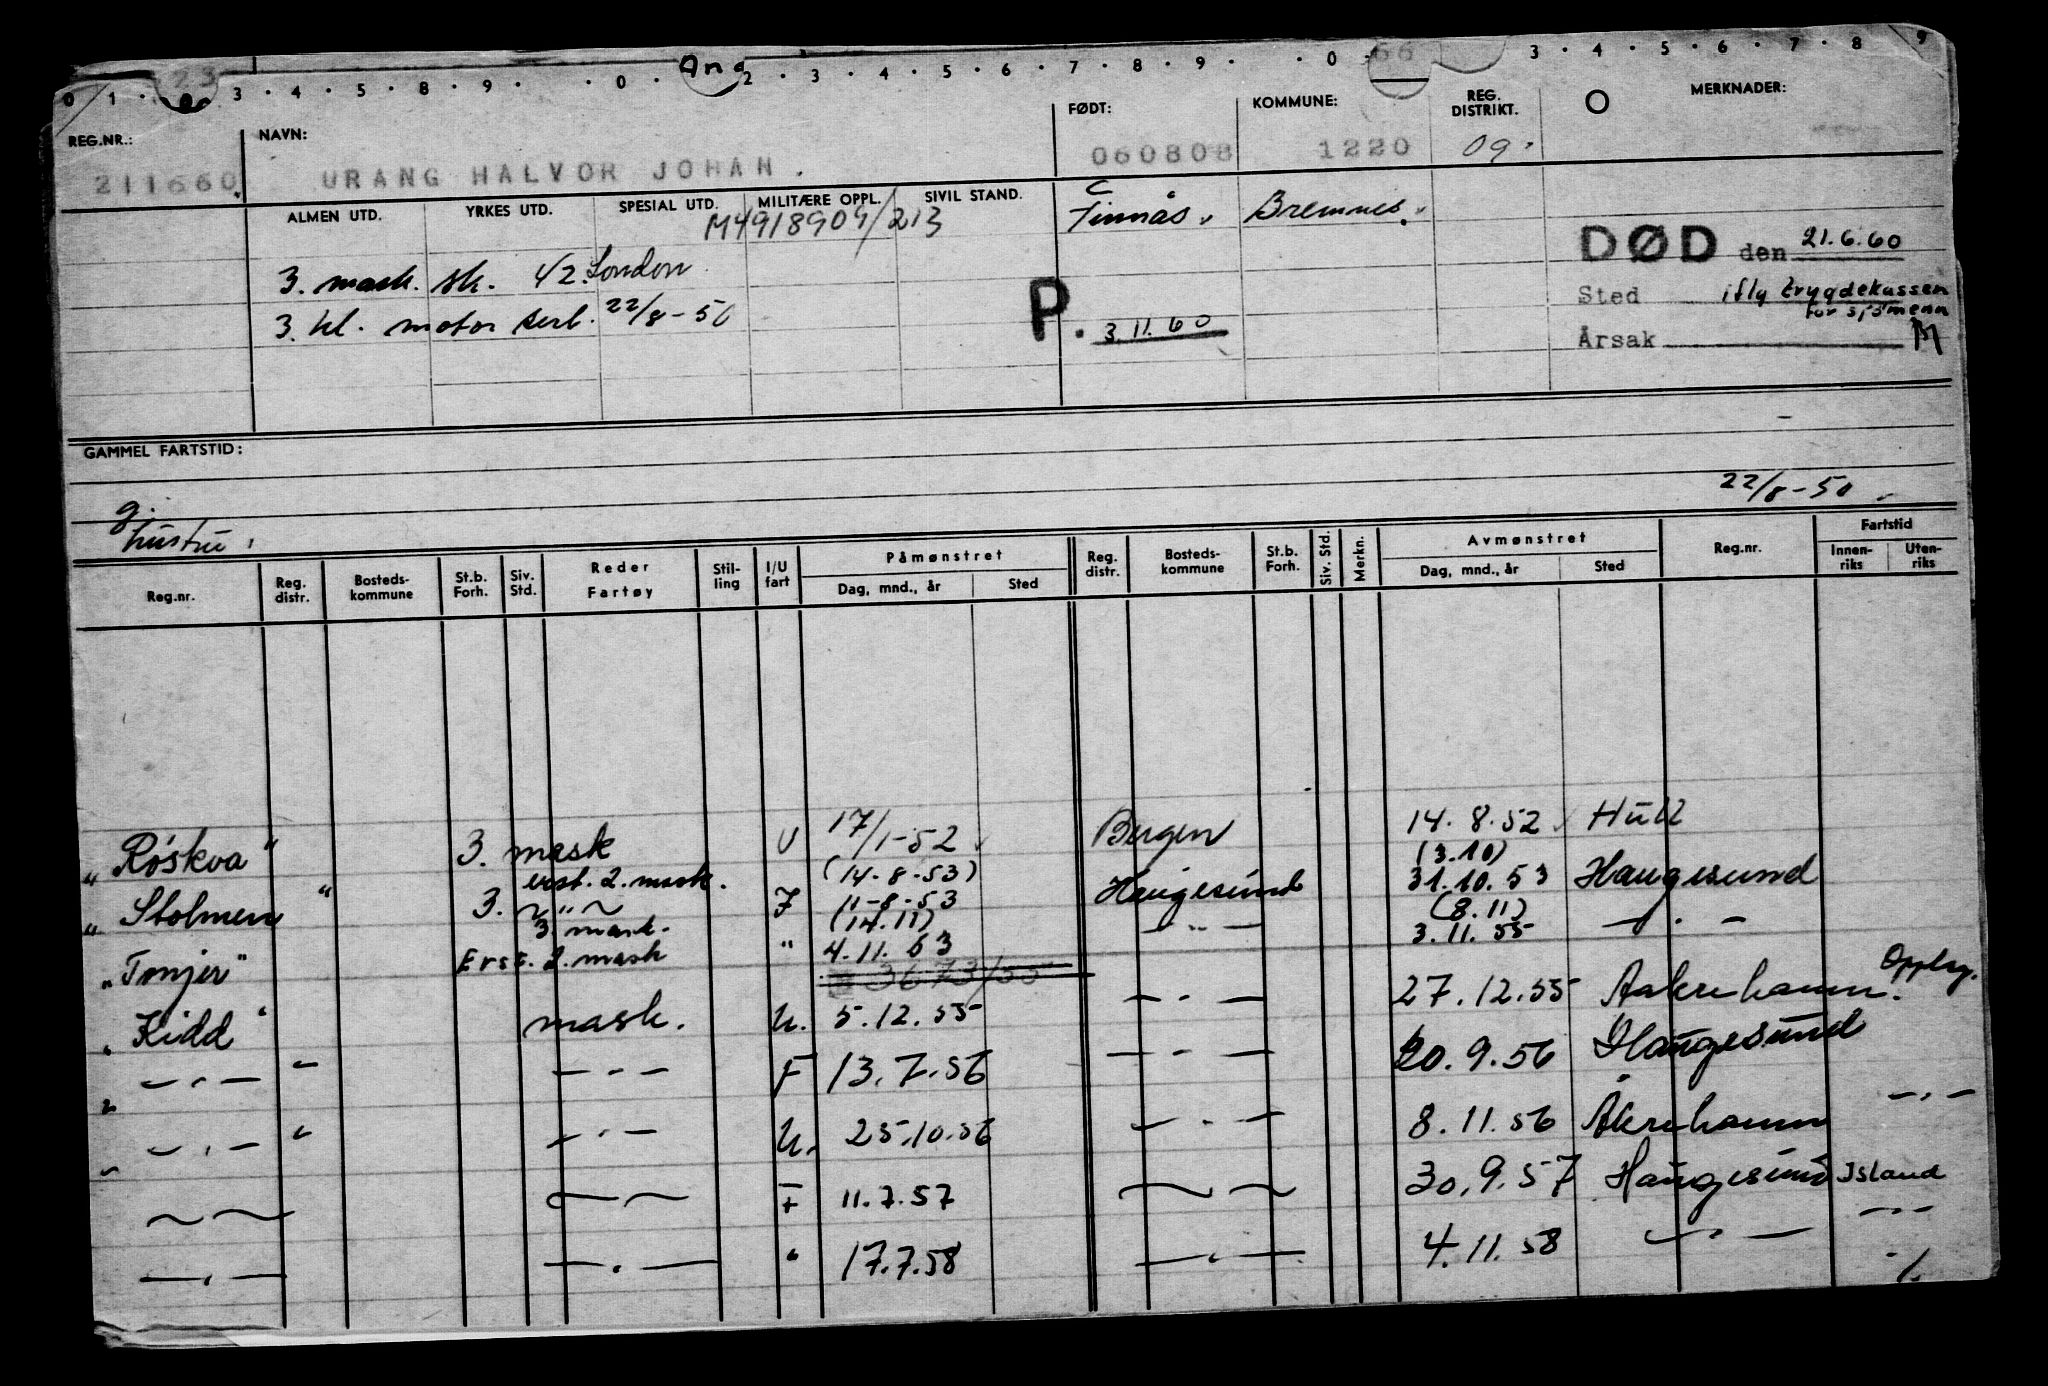 0 1 . 23 3 . 4 . 5 . 8 . 9 . . 0 . Ang 2 . 3 . 4 . 5 . 6 . 7 . 8 . 9 . . 0 66 3 . 4 . 5 . 6 . 7 . 8 9
REG.NR.: NAVN: FØDT: KOMMUNE: REG. DISTRIKT. MERKNADER:
211660. URANG HALVOR JOHAN. 060808 1220 09.
ALMEN UTD. YRKES UTD. SPESIAL UTD. MILITÆRE OPPL. SIVIL STAND. Finnås. Bremnes.
M4918909/213
DØD den 21.6.60
3. mask. sk. 42. London
Sted ifly trygdekassen for sjømenn
3. kl. motor sert. 22/8-50 P. 3.11.60
Årsak
GAMMEL FARTSTID:
22/8-50
g.
hustru.
Reg.nr. Reg. distr. Bosteds-kommune St.b. Forh. Siv. Std. Reder Fartøy Stil-ling I/U fart Påmønstret Dag, mnd., år Sted Reg. distr. Bosteds-kommune St.b. Forh. Siv. Std. Merkn. Avmønstret Dag, mnd., år Sted Reg.nr. Fartstid Innen-riks Uten-riks
"Røskva" 3. mask U 17/1-52 Bergen 14.8.52 Hull
erst. 2. mask. (14-8-53) (3.10)
"Stolmen" 3. ~ " ~ F 11-8-53 Haugesund 31.10.53 Haugesund
3. mask. (14.11) (8.11)
"Tonjer" Erst. 2. mask " 4.11.53 — " — 3.11.55 — " —
3673/55
"Kidd" mask. U. 5.12.55 — " — 27.12.55 Aakrehamn. Opplag.
— " — — " — F 13.7.56 — " — 20.9.56 Haugesund
— " — — " — U. 25.10.56 — " — 8.11.56 Åkrehamn — " —
~ ~ ~ ~ F 11.7.57 ~ ~ 30.9.57 Haugesund Island
— " — — " — " 17.7.58 — " — 4.11.58 — " — — " —